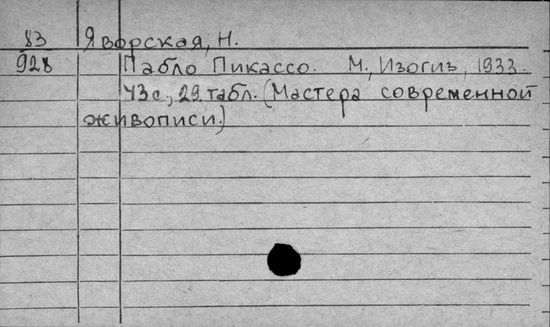 83 Яворская, Н.
928 Пабло Пикассо. М., Изогиз, 1933.
43с, 29 табл. (Мастера современной
живописи.)